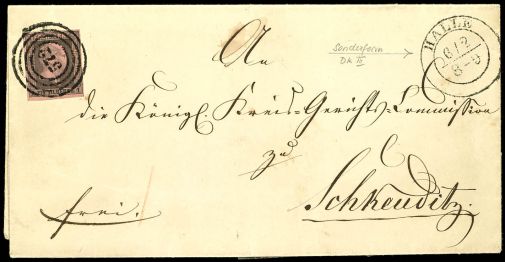 572
Sonderform
DK III
HALLE
26 12
8-9
An
die Königl. Kreis-Gerichts-Commission
zu
Schkeuditz.
frei.